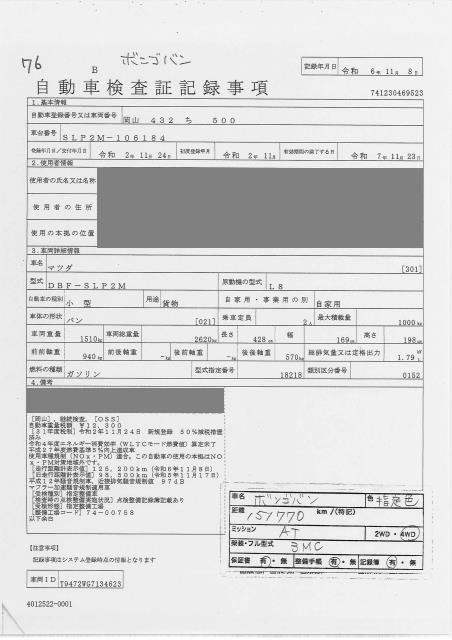 76
B
ボンゴバン
記録年月日 令和 6年11月 8日
自動車検査証記録事項
741230469523
1.基本情報
自動車登録番号又は車両番号 岡山 432 ち 500
車台番号 SLP2M-106184
登録年月日/交付年月日 令和 2年11月24日 初度登録年月 令和 2年11月 有効期間の満了する日 令和 7年11月23日
2.使用者情報
使用者の氏名又は名称
使用者の住所
使用の本拠の位置
3.車両詳細情報
車名 マツダ [301]
型式 DBF-SLP2M 原動機の型式 L8
自動車の種別 小型 用途 貨物 自家用・事業用の別 自家用
車体の形状 バン [021] 乗車定員 2人 最大積載量 1000kg
車両重量 1510kg 車両総重量 2620kg 長さ 428cm 幅 169cm 高さ 198cm
前前軸重 940kg 前後軸重 -kg 後前軸重 -kg 後後軸重 570kg 総排気量又は定格出力 1.79
燃料の種類 ガソリン 型式指定番号 18218 類別区分番号 0152
4.備考
[岡山],継続検査,[OSS]
自動車重量税額 ¥12,300
[31年度税制]令和2年11月24日 新規登録 50%減税措置
済み
令和4年度エネルギー消費効率(WLTCモード燃費値)算定未了
平成27年度燃費基準5%向上達成車
使用車種規制(NOx・PM)適合。この自動車の使用の本拠はNO
x・PM対策地域外です。
[走行距離計表示値]125,200km(令和6年11月8日)
[旧走行距離計表示値]98,500km(令和5年11月17日)
平成12年騒音規制車,近接排気騒音規制値 97dB
マフラー加速騒音規制適用車
[受検種別]指定整備車
[検査時の点検整備実施状況]点検整備記録簿記載あり
[受検形態]指定整備工場
[整備工場コード]74-00758
以下余白
車名 ボンゴバン 色 指定色
距離 151770 km/(特記)
ミッション AT 2WD・4WD
架装・フル型式 3MC
保証書 有・無 整備手帳 有・無 記録簿 有・無
[注意事項]
記録事項はシステム登録時点の情報となります
車両ID T9472WG7134623
4012522-0001